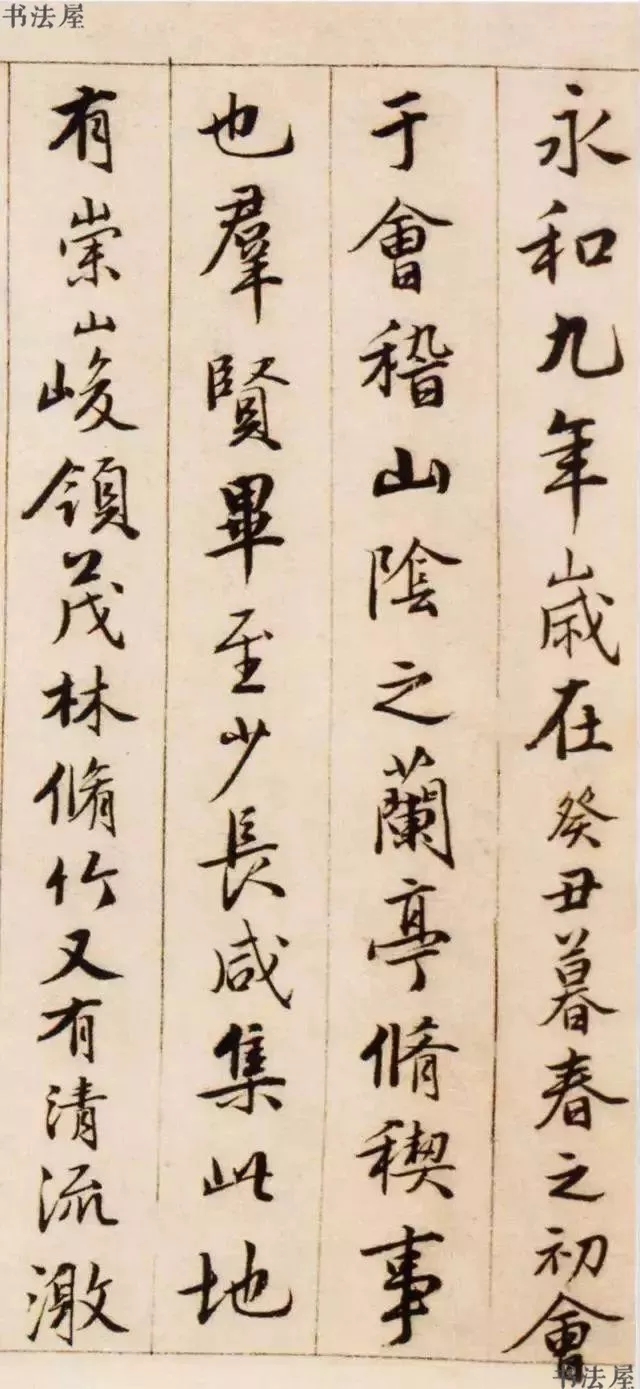 书法屋
永和九年歲在癸丑暮春之初會
于會稽山陰之蘭亭脩稧事
也羣賢畢至少長咸集此地
有崇山峻領茂林脩竹又有清流激
书法屋